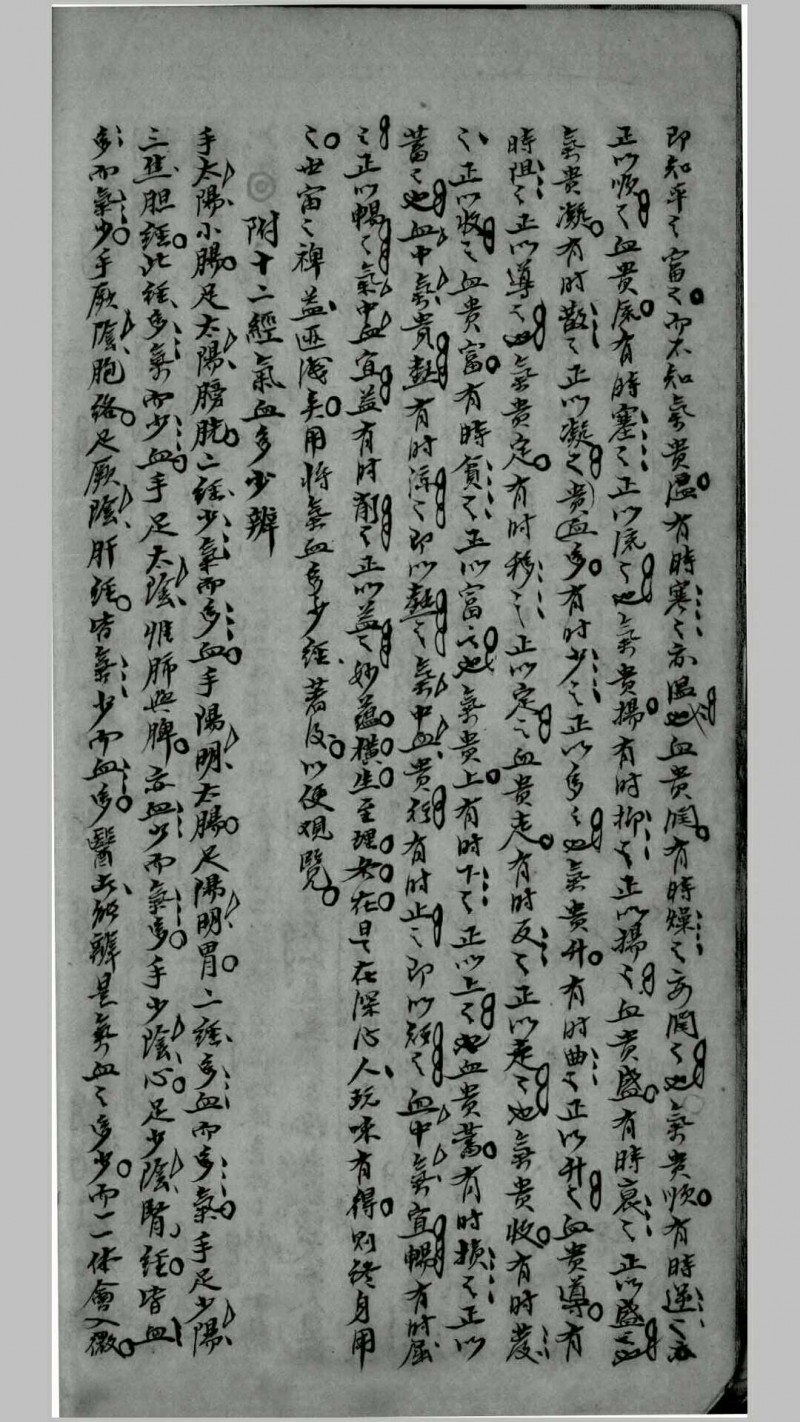 即知平之富之而不知氣貴溫有時寒之亦溫也血貴潤有時燥之亦潤之也氣貴順有時逆之亦
正以順之血貴流有時塞之正以流之也氣貴揚有時抑之正以揚之血貴盛有時衰之正以盛之也
氣貴凝有时散之正以凝之貴血多有时少之正以多之也氣貴升有时曲之正以升之血貴導有
時阻之正以導之也氣貴定有时移之正以定之血貴走有时反之正以走之也氣貴收有时發
之正以收之血貴富有時貧之正以富之也氣貴上有时下之正以上之也血貴蓄有时損之正以
蓄之也血中氣貴熱有时渾之即以熱之氣中血貴行有时止之即以行之血中氣宜暢有时屈
之正以暢之氣中血宜益有时削之正以益之妙蘊橫生至理安在是在深心人玩味有得則終身用
之世宙之裨益匪淺矣用將氣血多少經著後以便观覽
附十二經氣血多少辨
手太陽小腸足太陽膀胱二经少氣而多血手陽明大腸足陽明胃二经多血而多氣手足少陽
三焦胆经此经多氣而少血手足太陰惟肺與脾亦血少而氣多手少陰心足少陰腎经皆血
多而氣少手厥陰胞络足厥陰肝经皆氣少而血多醫此能辨是氣血之多少而一一体會入微